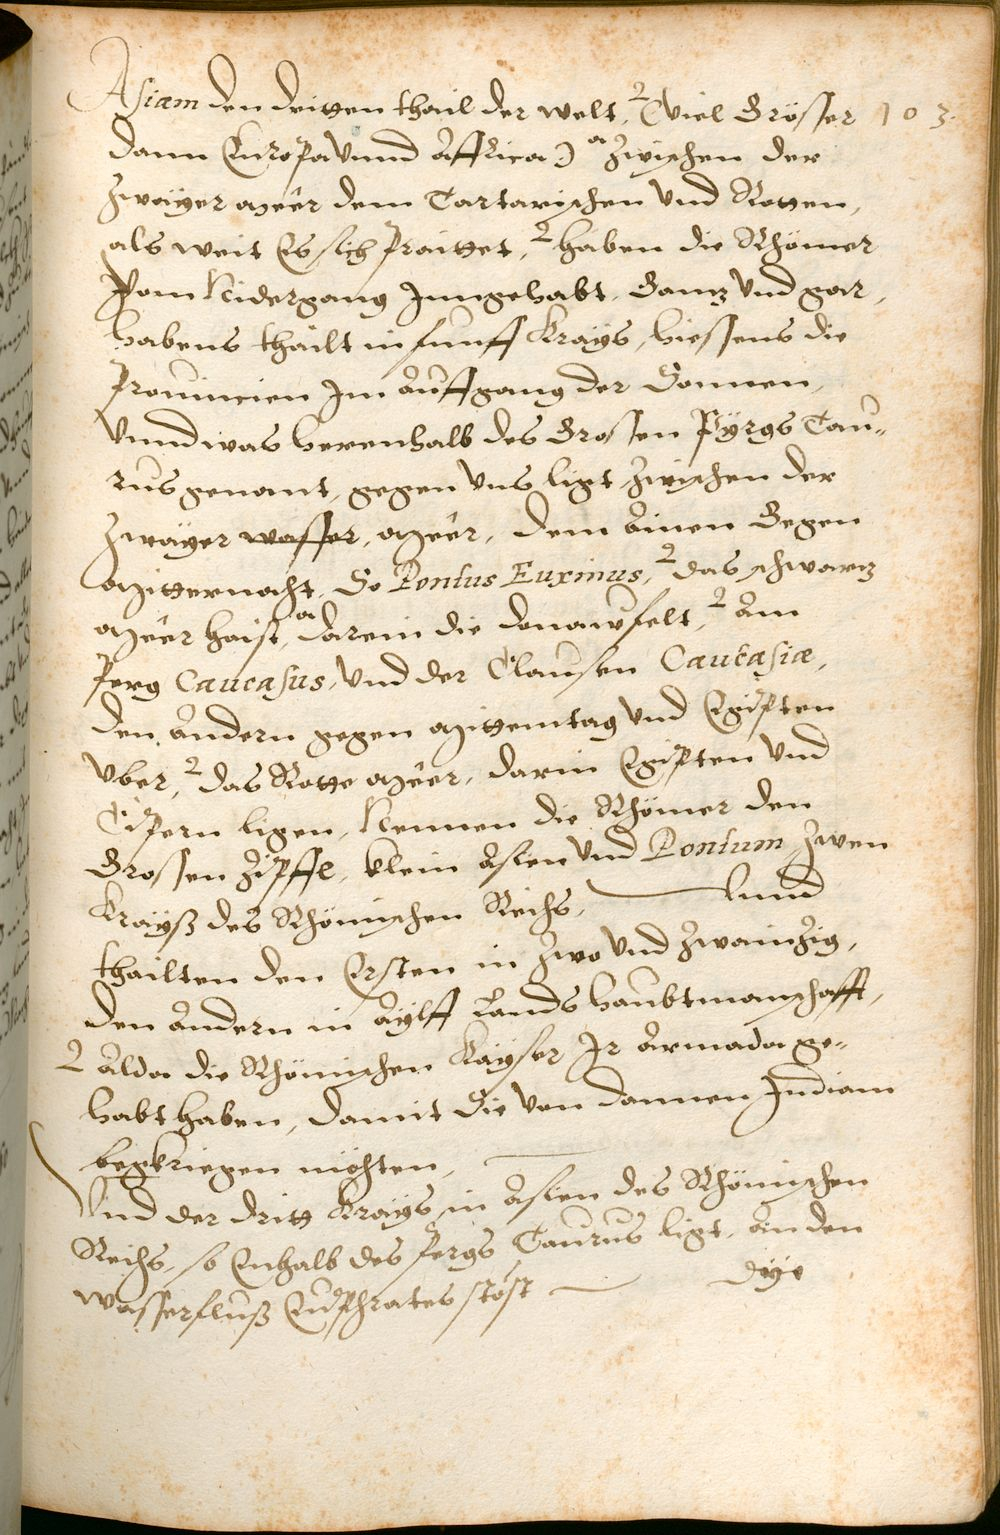 Asiam den dritten thail der welt, (viel Grösser 103.
dann Europa vnnd Affrica) zwischen der
zwayer Meer dem Tartarischen vnd Rotten,
als weit Es sich praittet, haben die Rhömer
Vom Nidergang Inngehabt, Ganz vnd gar,
habens thailt in funff Krays, hiessens die
Prouincien Im Auffgang der Sonnen,
Vnnd was herenhalb des Grossen Pyrgs Tau-
rus genant, gegen vns ligt, zwischen der
zwayer wasser, Meer, dem Ainen Gegen
Mitternacht, So Pontus Euxinus, das schwarz
Meer haist, darein die donaw felt, Am
Perg Caucasus, vnd der Clausen Caucasiæ,
den Andern gegen Mittemtag vnd Egipten
vber, das Rotte Meer, darin Egipten vnd
Cipern ligen, Nennen die Rhömer den
Grossen Zipffl, klein Asien vnd Pontum, zwen
Krayß des Rhömischen Reichs, Vnnd
thailten den Ersten in zwo vnd zwainzig,
den Andern in Aylff Lands haubtmanschafft,
Alda die Rhömischen Kayser Ir Armada ge-
habt haben, damit Sie von dannen Indiam
bekriegen möchten,
Vnd der dritt Krays in Asien des Rhömischen
Reichs, so Enhalb des Pergs Taurus ligt, an den
wasserfluß Euphrates stöst
Dise